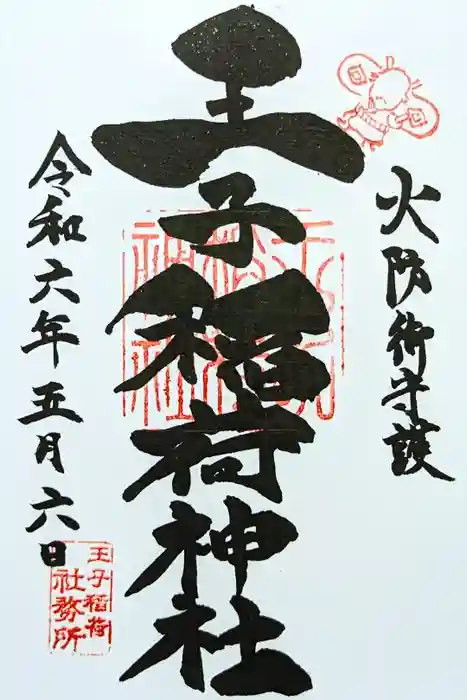 火防御守護
王子稲荷神社
令和六年五月六日
王子稲荷
社務所